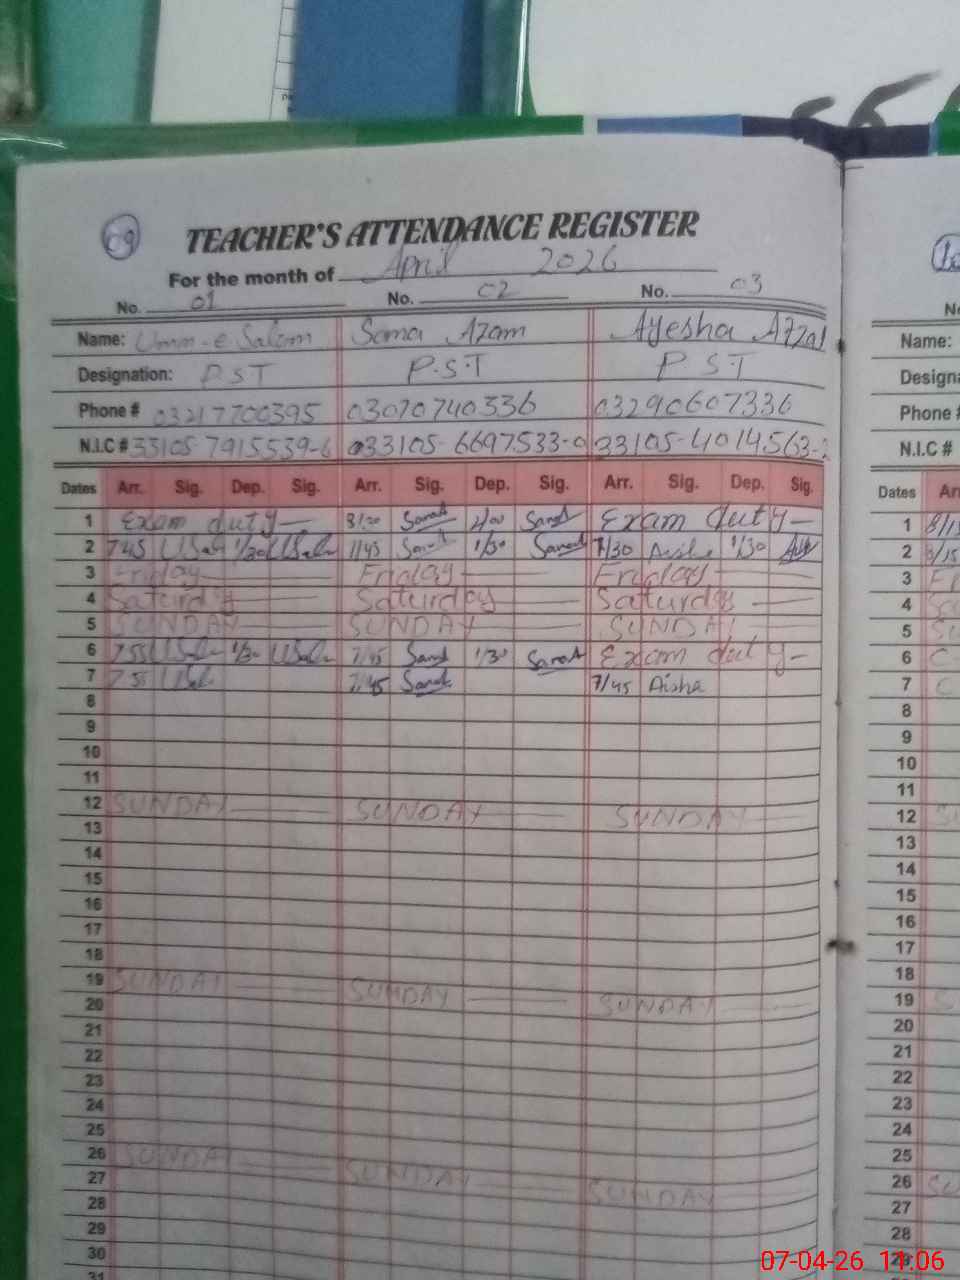 09
TEACHER'S ATTENDANCE REGISTER
For the month of April 2026
No. 01 No. 02 No. 03
Name: Umm-e Salam Sama Azam Ayesha Afzal
Designation: P S T P.S.T P S T
Phone # 03217700395 03070740336 03290607336
N.I.C # 33105 7915539-6 33105-6697533-0 33105-4014563-
Dates Arr. Sig. Dep. Sig. Arr. Sig. Dep. Sig. Arr. Sig. Dep. Sig.
1 Exam duty 8/20 2/00 Exam duty
2 7 45 1/30 7/45 1/30 7/30 Aisha 1/30
3 Friday Friday Friday
4 Saturday Saturday Saturday
5 SUNDAY SUNDAY SUNDAY
6 7 55 1/30 7/45 1/30 Exam duty
7 7 55 7/45 7/45 Aisha
8
9
10
11
12 SUNDAY SUNDAY SUNDAY
13
14
15
16
17
18
19 SUNDAY SUNDAY SUNDAY
20
21
22
23
24
25
26 SUNDAY SUNDAY SUNDAY
27
28
29
30
31
Name:
Phone #
N.I.C #
Dates
1 8/15
2 8/15
3
4
5
6
7
8
9
10
11
12
13
14
15
16
17
18
19
20
21
22
23
24
25
26
27
28
29
07-04-26 11:06